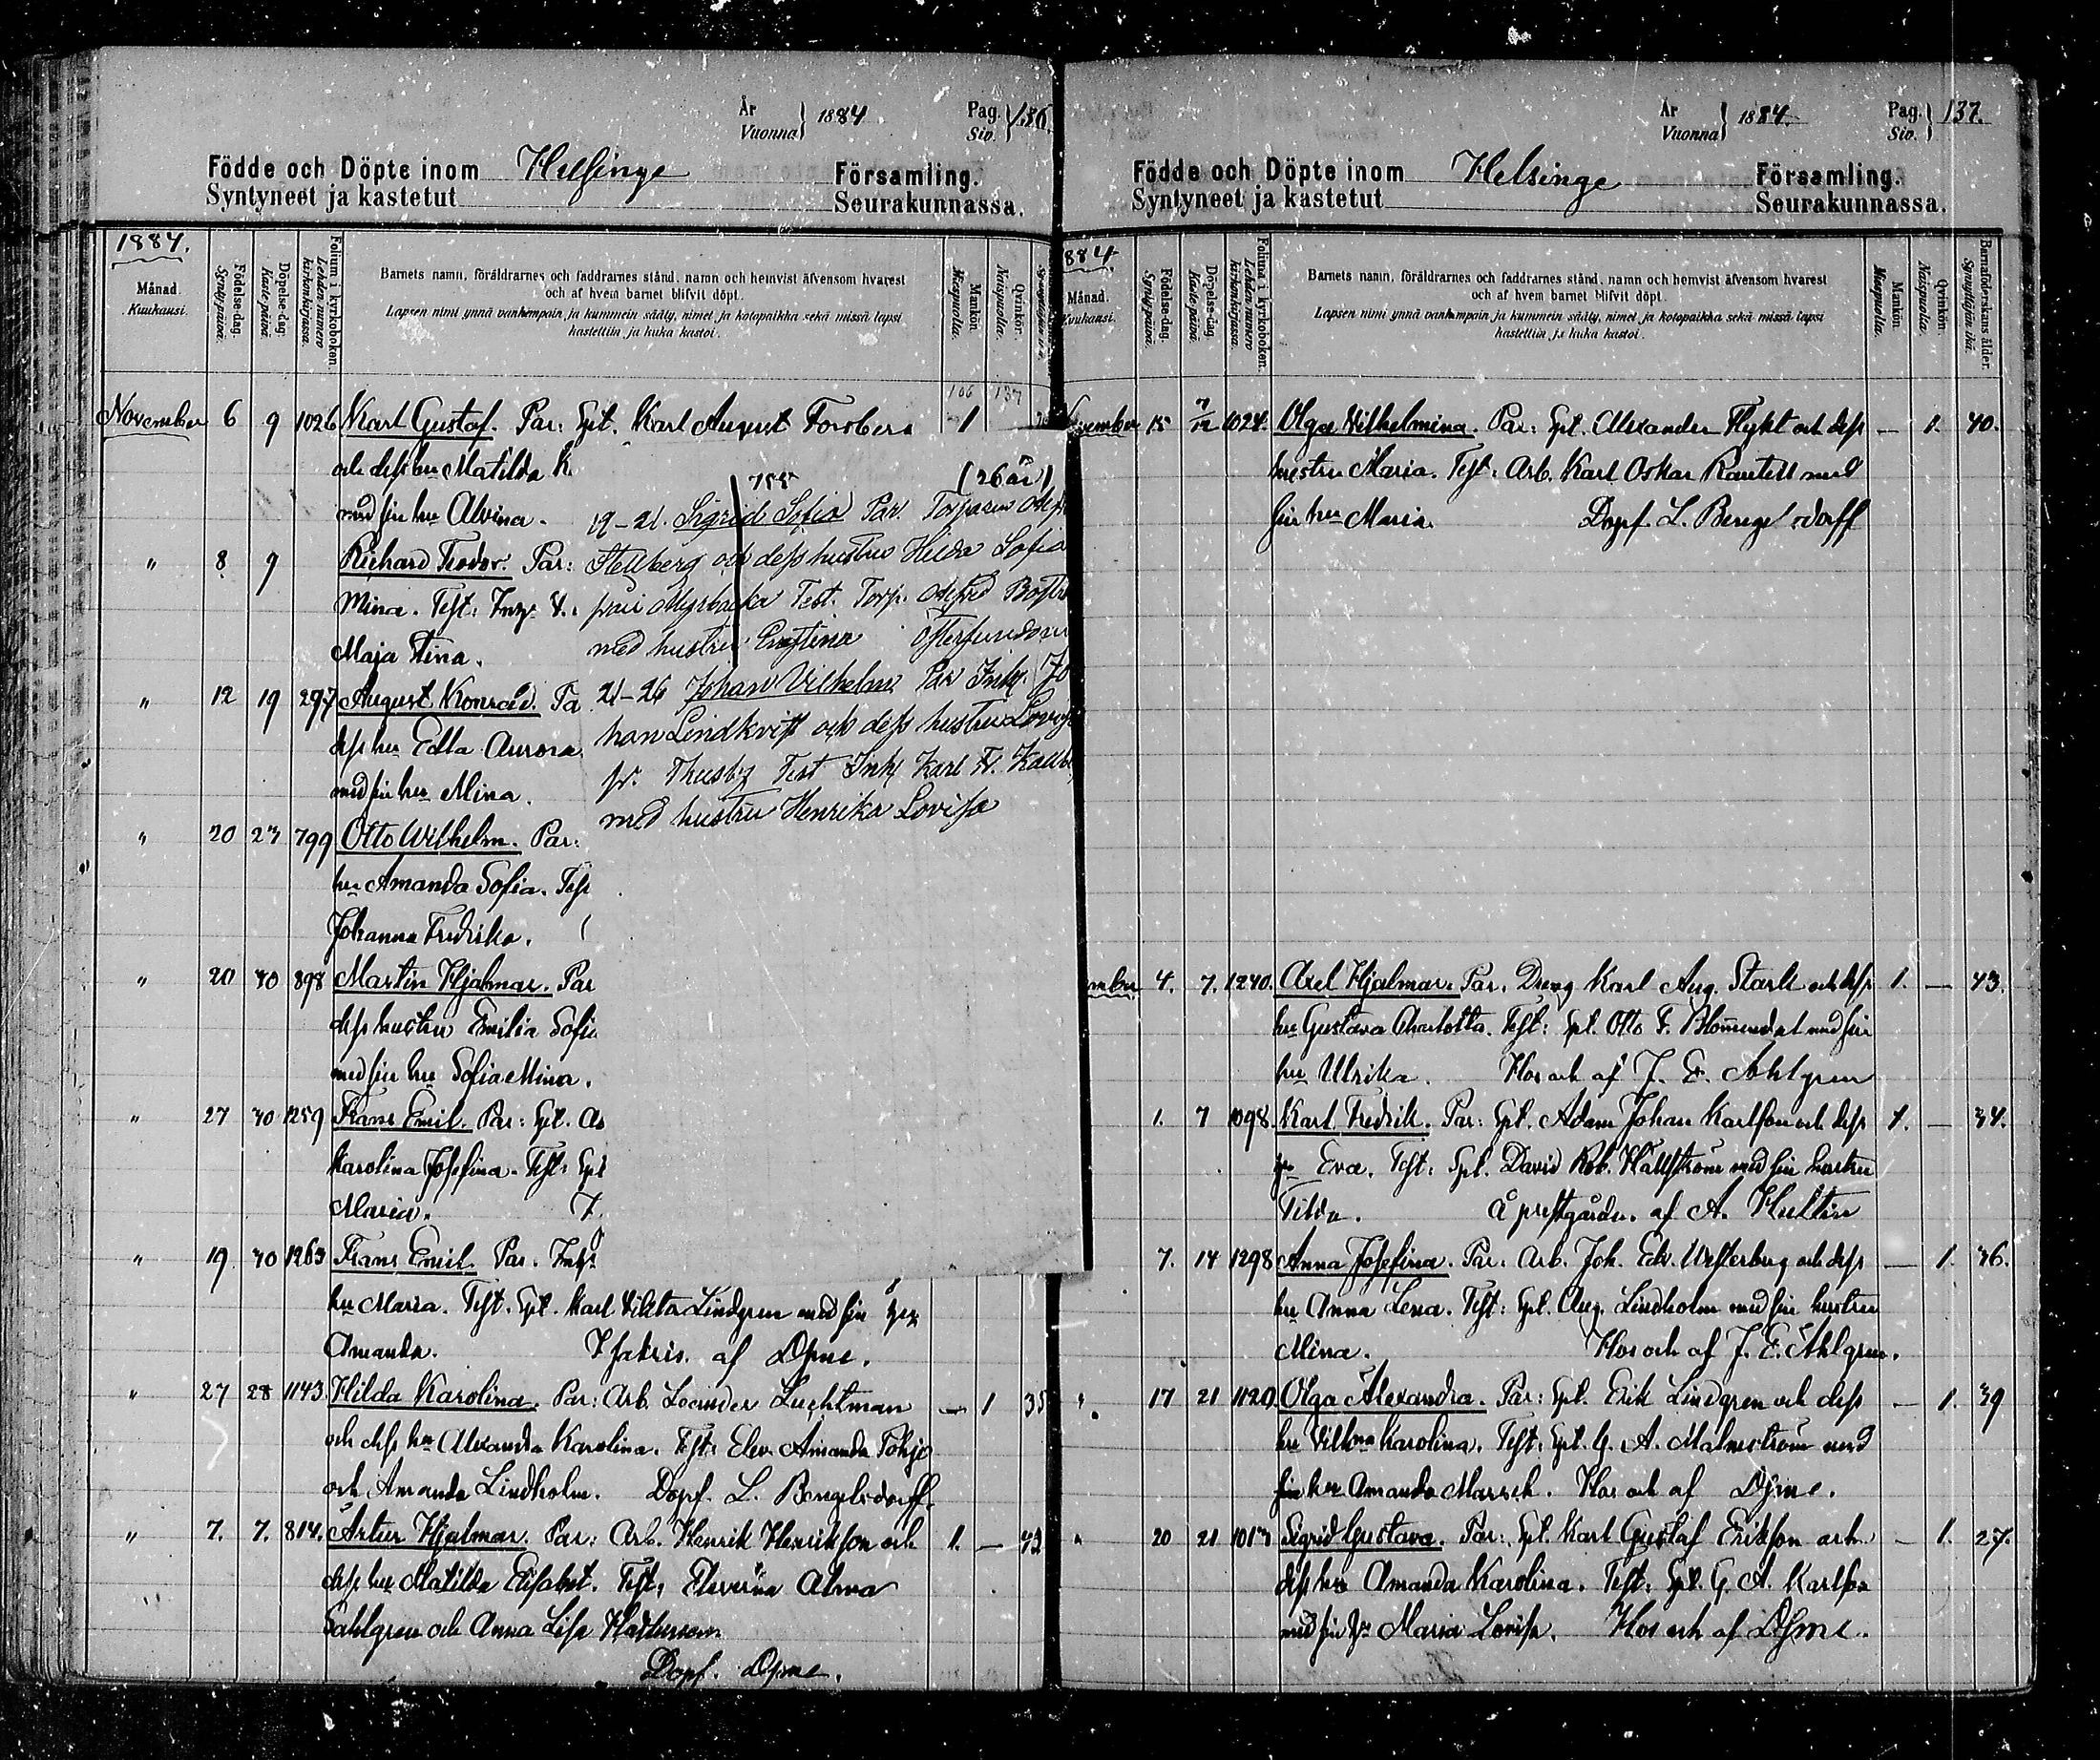 År
Vuonna } 1884
Pag.
Siv. } 136
Födde och Döpte inom Helsinge Församling.
Syntyneet ja kastetut Seurakunnassa.
1884.
Månad.
Kuukausi.
Födelse-dag.
Syntypäivä.
Döpelse-dag.
Kastepäivä.
Folium i kyrkoboken.
Lehden numero
kirkonkirjassa.
Barnets namn, föräldrarnes och faddrarnes stånd, namn och hemvist äfvensom hvarest
och af hvem barnet blifvit döpt.
Lapsen nimi ynnä vanhempain ja kummein sääty, nimet ja kotopaikka sekä missä lapsi
kastettiin ja kuka kastoi.
Mankön.
Miespuolia.
Qvinkön.
Naispuolia.
106 137
November 6 9 1026 Karl Gustaf. Par: Spt. Karl August Forsberg 1
och dess hu Matilda K
med sin hu Alvina.
" 8 9 Richard Teodor. Par:
Mina. Test: Inhys
Maja Stina.
" 12 19 297 August Konrad. Pa
dess hu Edla Aurora
med sin hu Mina.
" 20 23 799 Otto Wilhelm. Par:
hu Amanda Sofia. Test
Johanna Fredrika.
" 20 30 898 Martin Hjalmar. Par
dess hustru Emilia Sofia
med sin hu Sofia Mina.
" 27 30 1259 Frans Emil. Par: Spt. A
Karolina Josefina. Test: Spt
Maria.
" 19 30 1263 Frans Emil. Par. Inhys
hu Maria. Test. Spt. Karl Viktor Lindgren med sin hu
Amanda. I sakris. af Dsme.
" 27 28 1143. Hilda Karolina. Par: Arb. Leander Luchtman — 1 35
och dess hu Alexandra Karolina. Test: Elev. Amanda
och Amanda Lindholm. Dopf. L. Bengelsdorff.
" 7. 7. 814. Artur Hjalmar. Par: Arb. Henrik Henrikson och 1. — 42
dess hu Matilda Elisabet. Test: Eleverna Alma
Sahlgren och Anna Lisa
Dopf. Dsme.
(26 år)
19-21. Sigrid Sofia Par. Torparen
Stellberg och dess hustru Hilda Sofia
från Myrbacka Test. Torp. Alfred
med hustru Östersundom
21-26 Johan Vilhelm Par Inhys. Jo
han Lindkvist och dess hustru Lovisa
fr. Thusby Test Inhys Karl F.
med hustru Henrika Lovisa
År
Vuonna } 1884.
Pag.
Siv. } 137.
Födde och Döpte inom Helsinge Församling.
Syntyneet ja kastetut Seurakunnassa.
884.
Månad.
Kuukausi.
Födelse-dag.
Syntypäivä.
Döpelse-dag.
Kastepäivä.
Folium i kyrkoboken.
Lehden numero
kirkonkirjassa.
Barnets namn, föräldrarnes och faddrarnes stånd, namn och hemvist äfvensom hvarest
och af hvem barnet blifvit döpt.
Lapsen nimi ynnä vanhempain ja kummein sääty, nimet ja kotopaikka sekä missä lapsi
kastettiin ja kuka kastoi.
Mankön.
Miespuolia.
Qvinkön.
Naispuolia.
Barnaföderskans ålder.
Synnyttäjän ikä.
vember 15 1024. Olga Vilhelmina. Par: Spt. Alexander Flykt och dess — 1. 40.
hustru Maria. Test: Arb. Karl Oskar Rautell med
sin hu Maria. Dopf. L. Bengelsdorff
mber 4. 7. 1240. Axel Hjalmar. Par. Dreng Karl Aug. Stark och dess 1. — 43.
hu Gustava Charlotta. Test: Spt. Otto F. Blommendal med sin
hu Ulrika. Hos och af J. E. Ahlgren
1. 7 1098. Karl Fredrik. Par: Spt. Adam Johan Karlson och dess 1. — 34.
hu Eva. Test: Spt. David Rob. Hallström med sin hustru
Tilda. Å prestgården. af A. Hultin
7. 14 1298 Anna Josefina. Par: Arb. Joh. Edv. Westerberg och dess — 1. 36.
hu Anna Lena. Test: Spt. Aug. Lindholm med sin hustru
Mina. Hos och af J. E. Ahlgren.
" 17 21 1129 Olga Alexandra. Par: Spt. Erik Lindgren och dess — 1. 39
hu Vilhna Karolina. Test: Spt. G. A. Malmström med
sin hu Amanda Hos och af Dsme.
" 20 21 1013 Sigrid Gustava. Par: Spt. Karl Gustaf Erikson och — 1. 27.
dess hu Amanda Karolina. Test: Spt. G. A. Karlson
med sin hu Maria Lovisa. Hos och af Dsme.